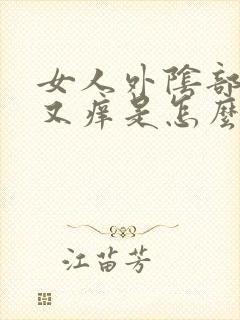 女人外陰部
又痒是怎麽
江苗芳